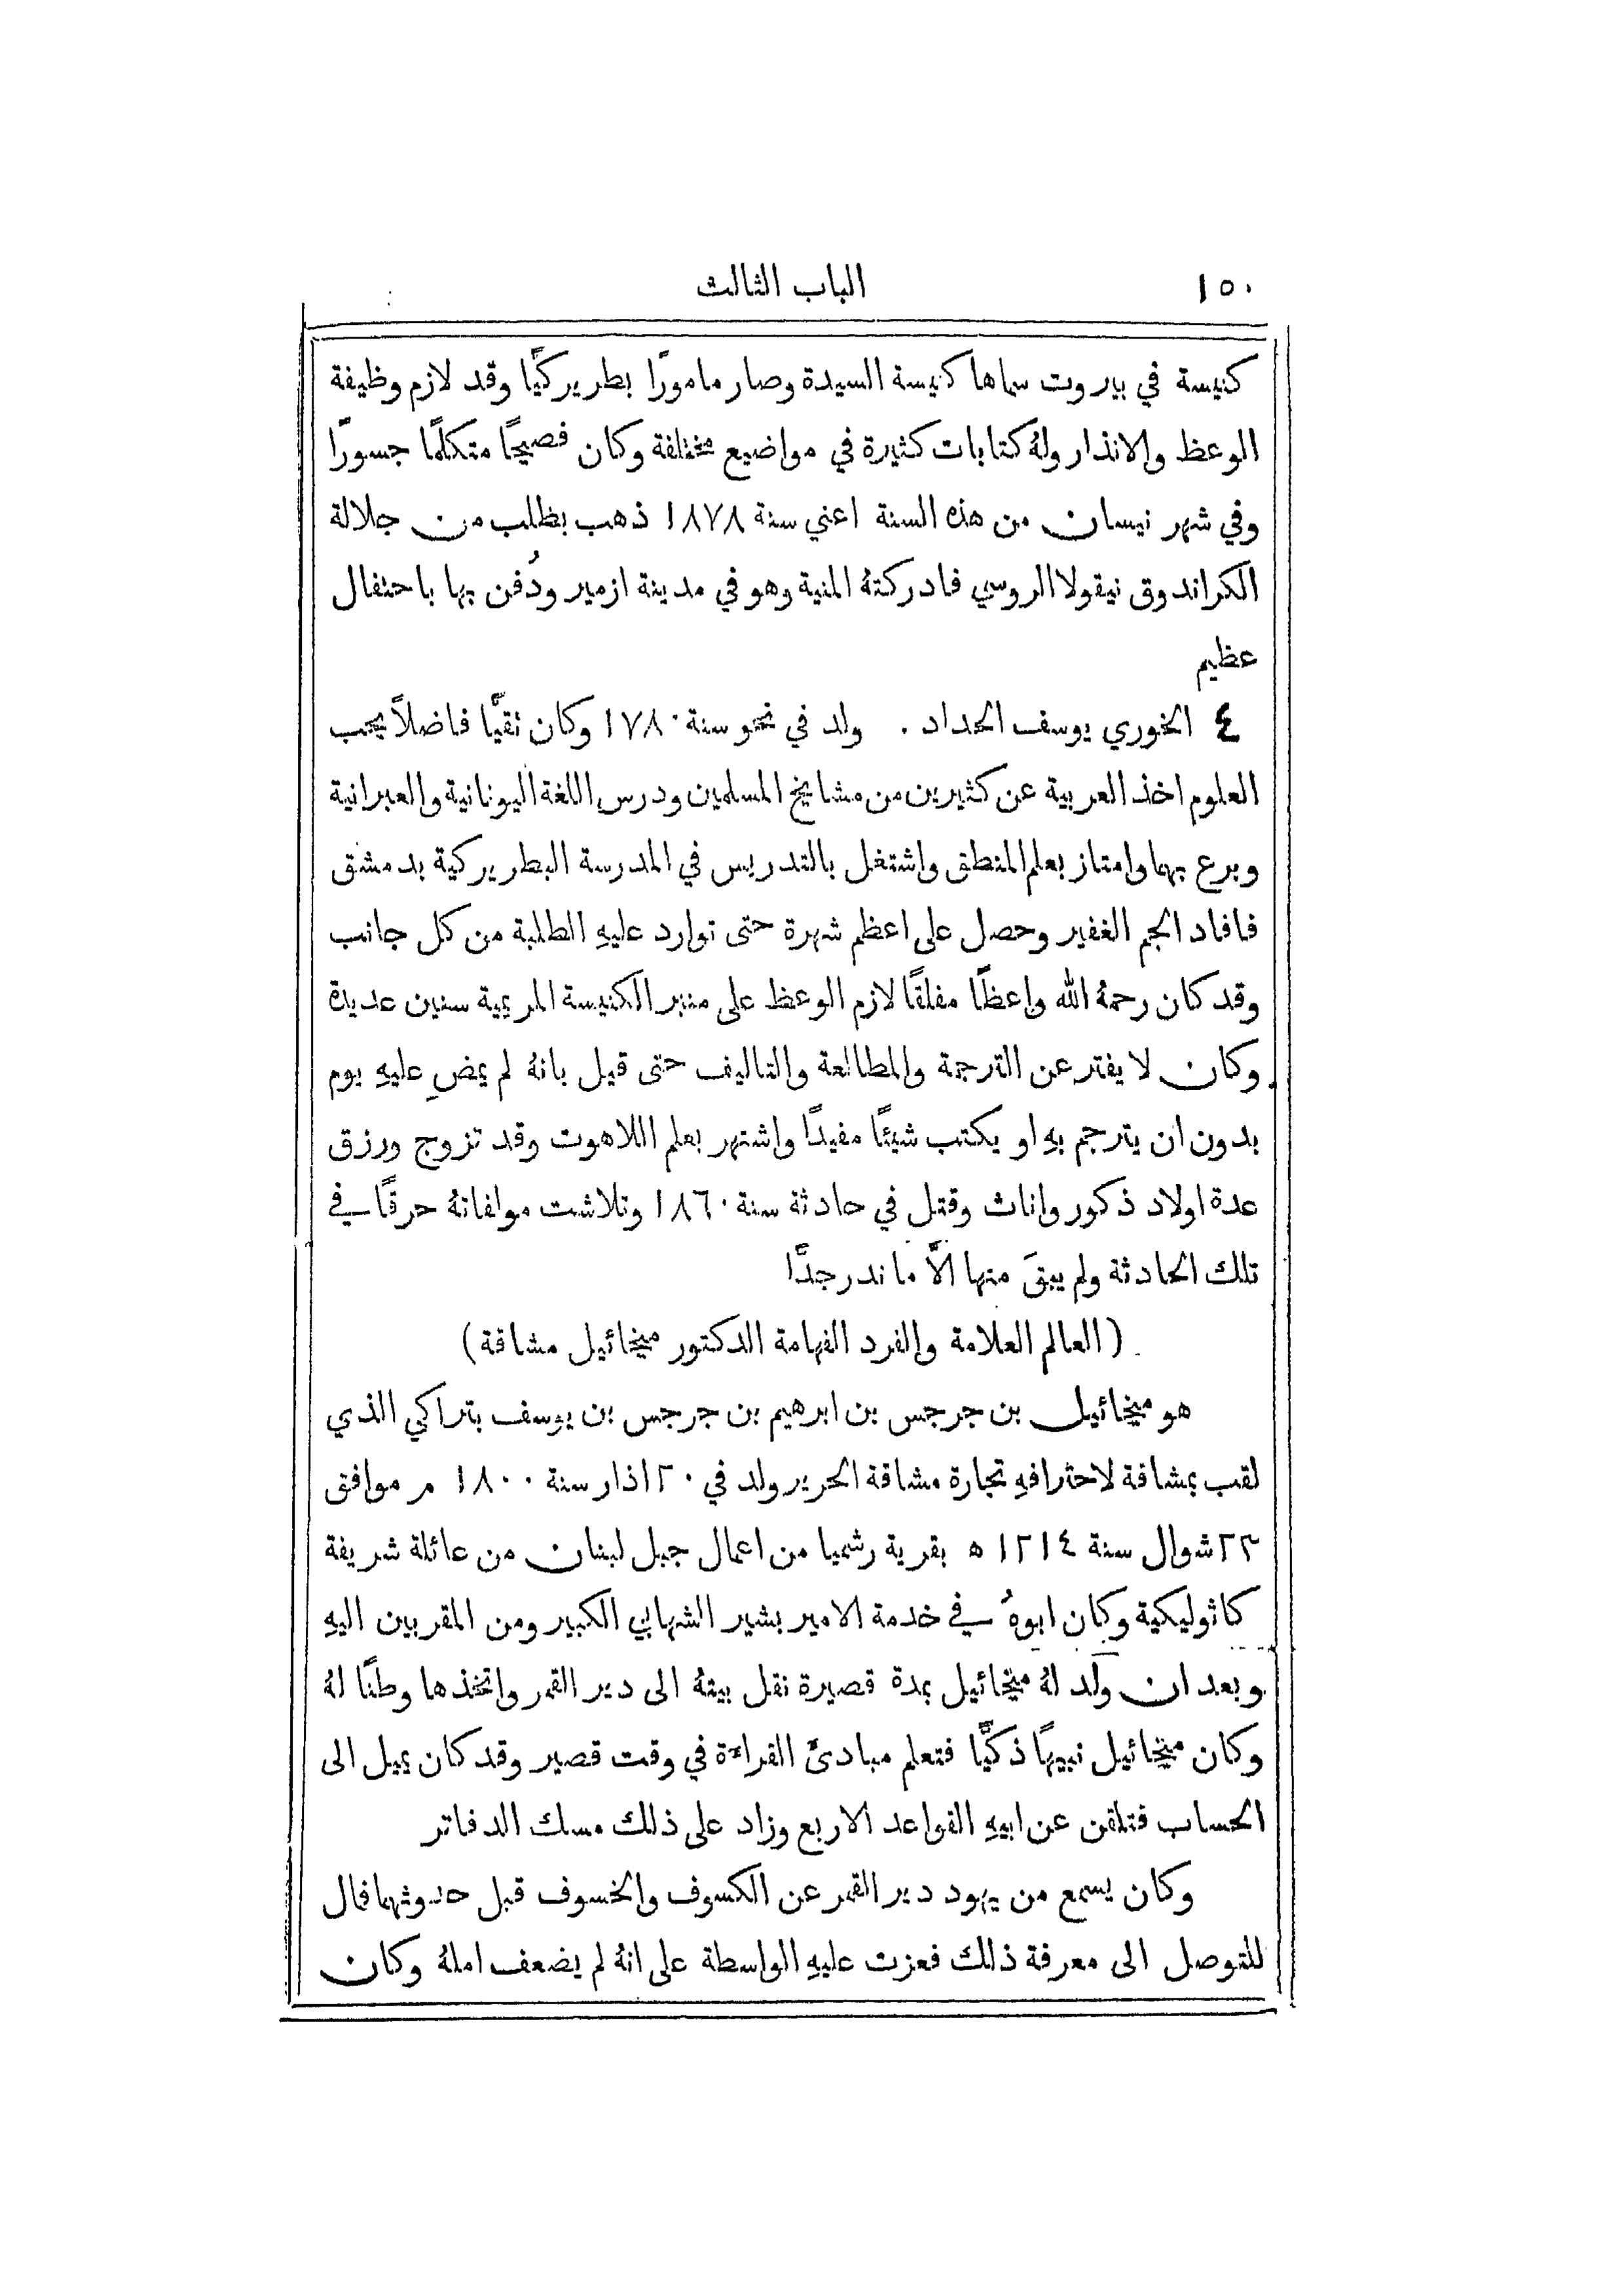 ١٥٠ الباب الثالث
كنيسة في بيروت سماها كنيسة السيدة وصار مامورًا بطريركيًّا وقد لازم وظيفة
الوعظ والانذار ولهُ كتابات كثيرة في مواضيع مختلفة وكان فصيحًا متكلمًا جسورًا
وفي شهر نيسان من هذه السنة اعني سنة ١٨٧٨ ذهب بطلب من جلالة
الكراندوق نيقولا الروسي فادركتهُ المنية وهو في مدينة ازمير ودُفن بها باحتفال
عظيم
٤ الخوري يوسف الحداد . ولد في نحو سنة ١٧٨٠ وكان تقيًّا فاضلاً يحب
العلوم اخذ العربية عن كثيرين من مشايخ المسلمين ودرس اللغة اليونانية والعبرانية
وبرع بهما وامتاز بعلم المنطق واشتغل بالتدريس في المدرسة البطريركية بدمشق
فافاد الجم الغفير وحصل على اعظم شهرة حتى توارد عليهِ الطلبة من كل جانب
وقد كان رحمهُ الله واعظًا مفلقًا لازم الوعظ على منبر الكنيسة المريمية سنين عديدة
وكان لا يفتر عن الترجمة والمطالعة والتاليف حتى قيل بانهُ لم يمضِ عليهِ يوم
بدون ان يترجم بهِ او يكتب شيئًا مفيدًا واشتهر بعلم اللاهوت وقد تزوج ورزق
عدة اولاد ذكور واناث وقتل في حادثة سنة ١٨٦٠ وتلاشت مولفاتهُ حرقًا في
تلك الحادثة ولم يبقَ منها الاَّ ما ندر جدًّا
(العالم العلامة والفرد الفهامة الدكتور ميخائيل مشاقة)
هو ميخائيل بن جرجس بن ابرهيم بن جرجس بن يوسف بتراكي الذي
لقب بمشاقة لاحترافهِ تجارة مشاقة الحرير ولد في ٢٠ اذار سنة ١٨٠٠ م موافق
٢٣ شوال سنة ١٢١٤ ه بقرية رشميا من اعمال جبل لبنان من عائلة شريفة
كاثوليكية وكان ابوهُ في خدمة الامير بشير الشهابي الكبير ومن المقربين اليهِ
وبعد ان ولد لهُ ميخائيل بمدة قصيرة نقل بيتهُ الى دير القمر واتخذها وطنًا لهُ
وكان ميخائيل نبيهًا ذكيًّا فتعلم مبادئ القراءة في وقت قصير وقد كان يميل الى
الحساب فتلقن عن ابيهِ القواعد الاربع وزاد على ذلك مسك الدفاتر
وكان يسمع من يهود دير القمر عن الكسوف والخسوف قبل حدوثهما فمال
للتوصل الى معرفة ذلك فعزت عليهِ الواسطة على انهُ لم يضعف املهُ وكان